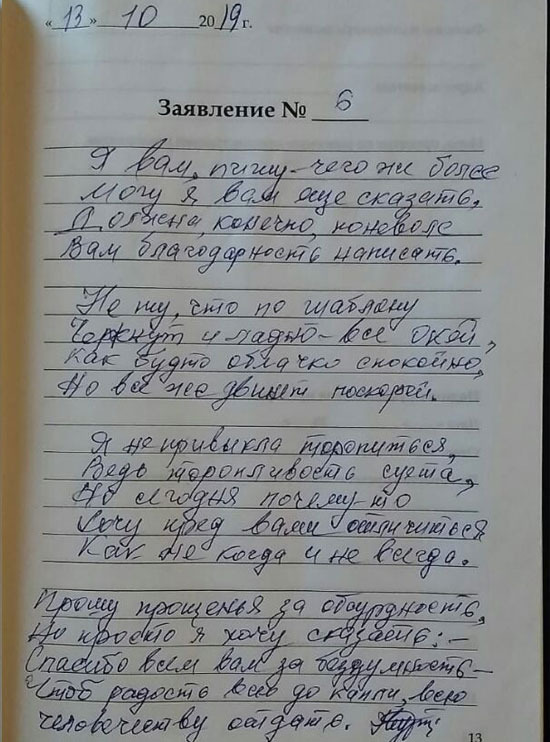 «13» 10 2019 г.
Заявление № 6
Я вам пишу - чего же более
Могу я вам еще сказать,
Должна, конечно, поневоле
Вам благодарность написать.
Не ту, что по шаблону
Черкнут и ладно - все окей,
Как будто облачко спокойно,
Но все же двинет поскорей.
Я не привыкла торопиться,
Ведь торопливость суета,
Но сегодня почему-то
Хочу пред вами отличиться
Как не когда и не всегда.
Прошу прощенья за абсурдность,
Но просто я хочу сказать: -
Спасибо всем вам за бездумность -
Чтоб радость всю до капли, всю
человечеству отдать.
13